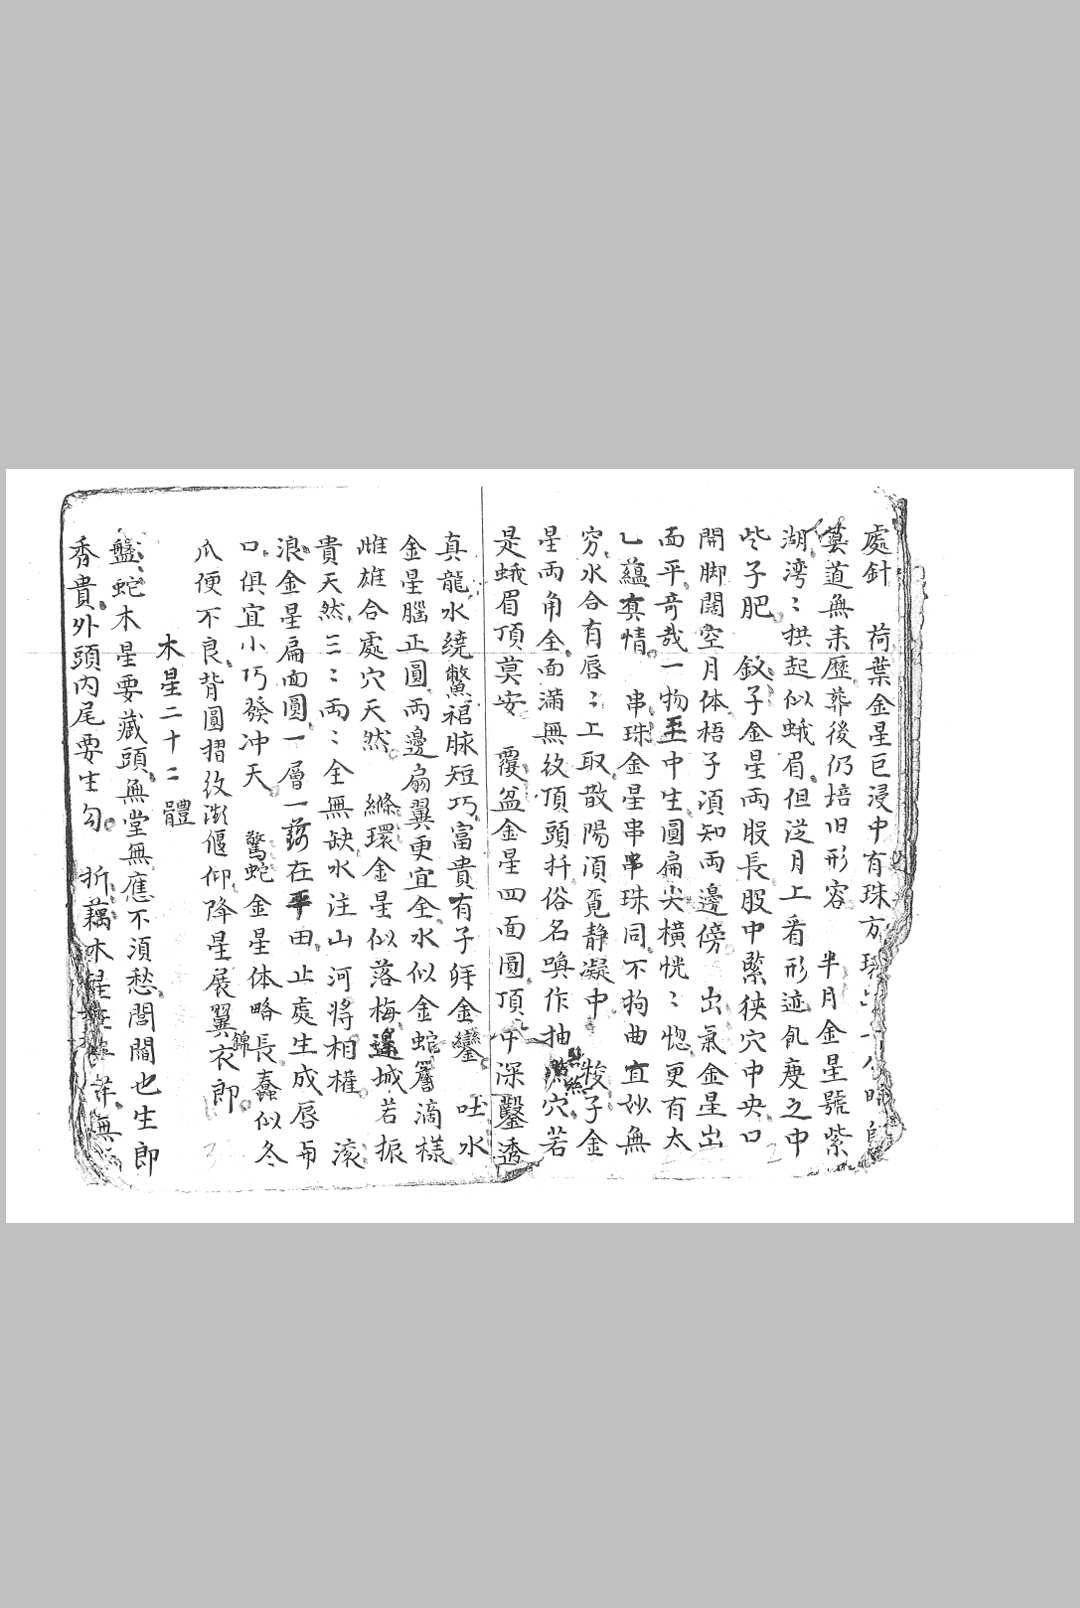 處針　荷葉金星巨浸中有珠方
葬道無来歷葬後仍培旧形容　半月金星號紫
湖湾〻拱起似蛾眉但從月上看形迹飢庚之中
些子肥　釵子金星両股長股中緊狹穴中央口
開脚闊空月体梧子須知両邊傍　出氣金星出
面平竒哉一物至中生圓扁尖横恍〻惚更有太
乙蘊真情　串珠金星串串珠同不拘曲直妙無
穷水合有唇〻上取散陽須覓静凝中　梭子金
星両角全面滿無紋頂頭扦俗名喚作抽絲穴若
是蛾眉頂莫安　覆盆金星四面圓頂深鑿透
真龍水繞鱉裙脉短巧富貴有子好金鑾　吐水
金星腦正圓両邊扇翼更宜全水似金蛇簷滴様
雌雄合處穴天然　絛環金星似落梅邉城若振
貴天然三〻両〻全無缺水注山河將相權　滚
浪金星扁面圓一層一落在平田止處生成唇吊
口俱宜小巧發冲天　驚蛇金星体略長蠢似冬
瓜便不良背圓摺紋漸偃仰降星展翼錦衣郎
木星二十二體
盤蛇木星要藏頭無堂無應不須愁閭閻也生郎
香貴外頭内尾要生勾　折藕木星